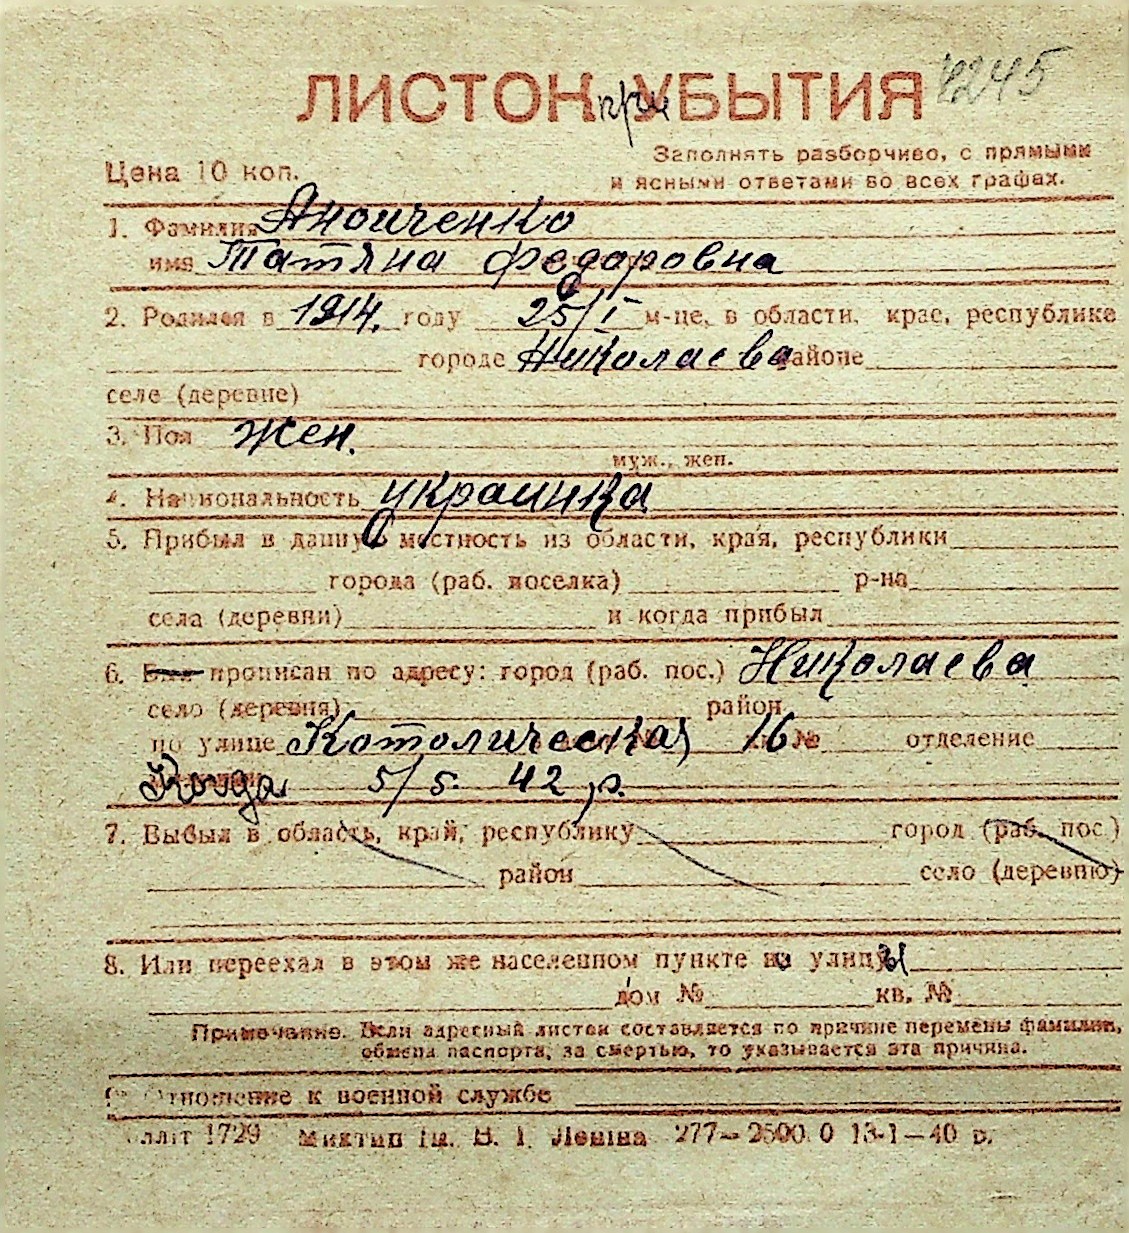 ЛИСТОК при УБЫТИЯ 4245
Цена 10 коп.
Заполнять разборчиво, с прямыми
и ясными ответами во всех графах.
1. Фамилия Аноиченко
имя Татяна Федоровна
2. Родился в 1914. году 25/I м-це, в области, крае, республике
городе Николаева районе
селе (деревне)
3. Пол жен.
муж., жен.
4. Национальность украинка
5. Прибыл в данную местность из области, края, республики
города (раб. поселка) р-на
села (деревни) и когда прибыл
6. Был прописан по адресу: город (раб. пос.) Николаева
село (деревня) район
по улице Котолическая 16 № отделение
Когда 5/5. 42 р.
7. Выбыл в область, край, республику город (раб. пос.)
район село (деревню)
8. Или переехал в этом же населенном пункте из улицы
дом № кв. №
Примечание. Если адресный листок составляется по причине перемены фамилии,
обмена паспорта, за смертью, то указывается эта причина.
9. Отношение к военной службе
лліт 1729 Миктип ім. В. І. Леніна 277—2500.0 13-1—40 р.